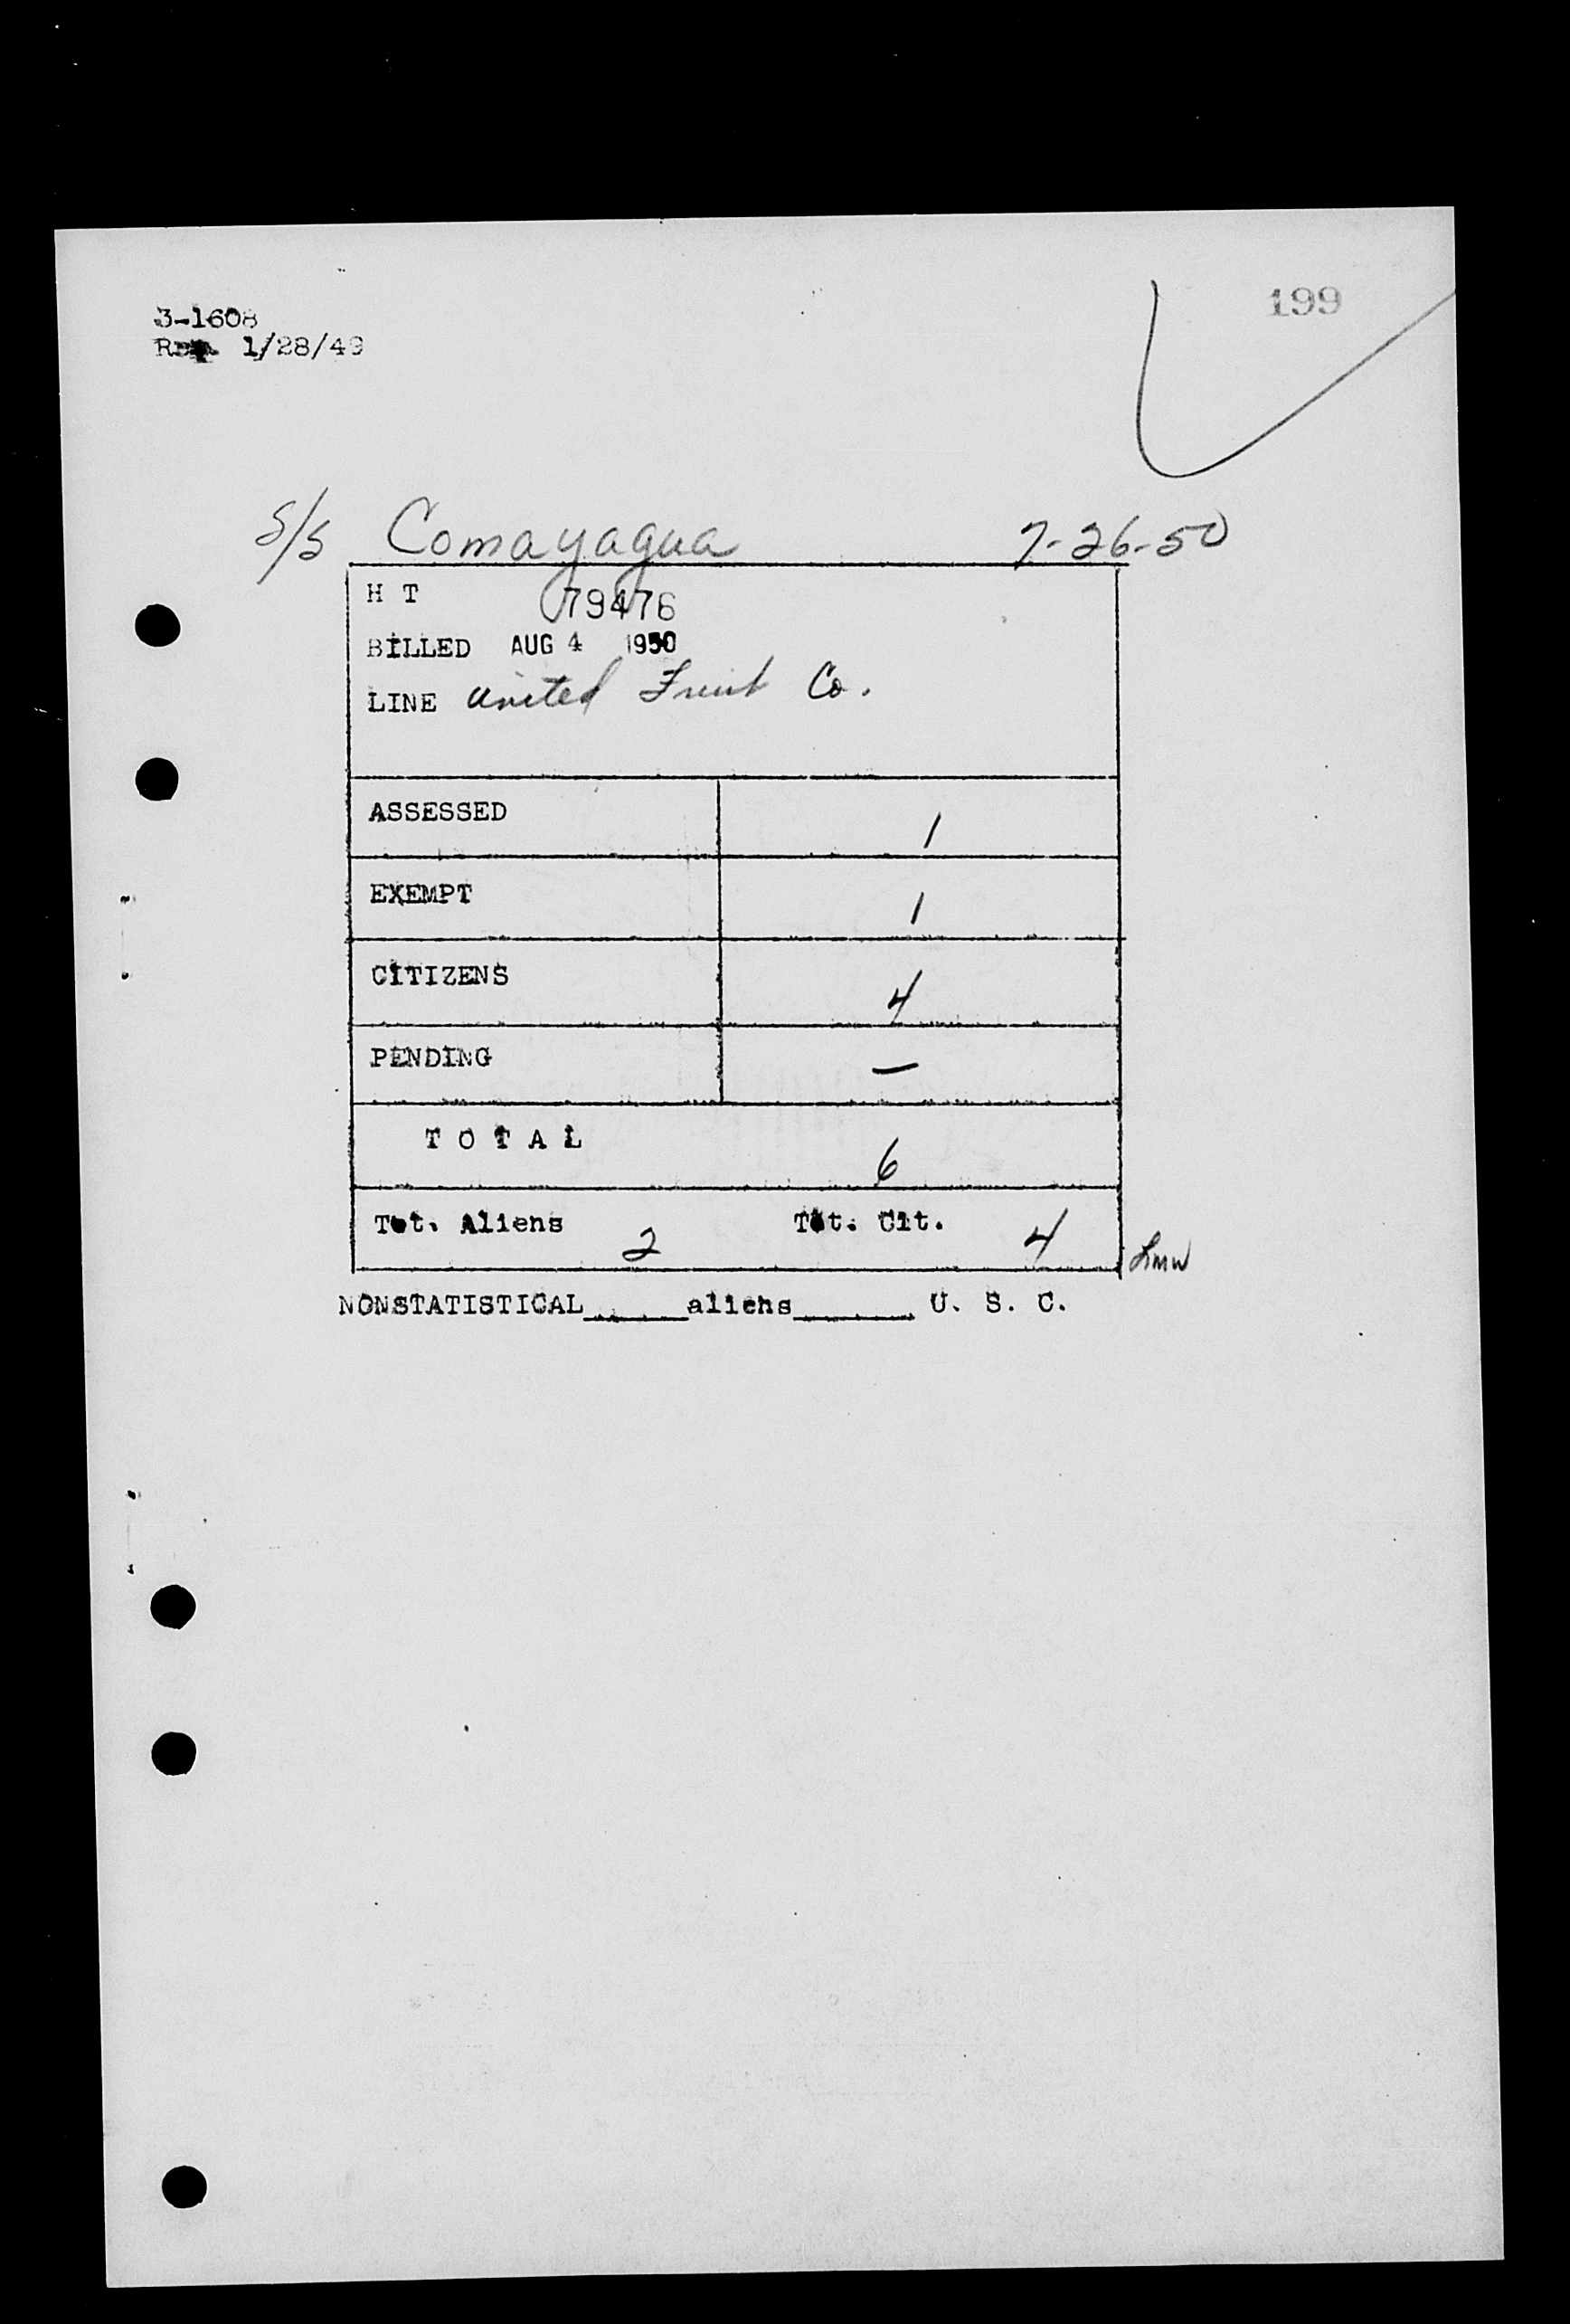 199
3-1608
1/28/49
S/S Comayagua 7-26-50
H T 79476
BILLED AUG 4 1950
LINE United Fruit Co.
ASSESSED 1
EXEMPT 1
CITIZENS 4
PENDING —
TOTAL 6
Tot. Aliens 2 Tot. Cit. 4 LMW
NONSTATISTICAL______aliens______ U. S. C.